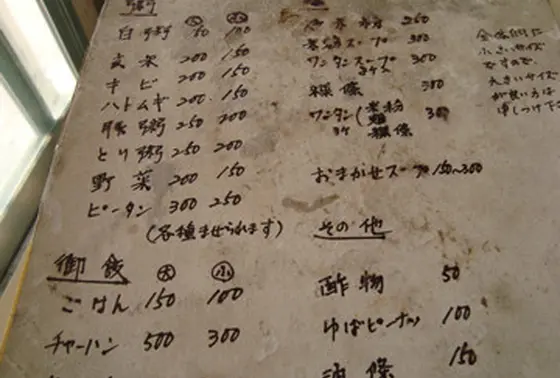 粥 大 小
白粥 150 100
玄米 200 150
キビ 200 150
ハトムギ 200 150
豚粥 250 200
とり粥 250 200
野菜 200 150
ピータン 300 250
(各種ませられます)
御飯 大 小
ごはん 150 100
チャーハン 500 300
250
スープ 300
ワンタンスープ 300
300
ワンタン 300
おまかせスープ 150~300
その他
酢物 50
ゆばピーナッツ 100
油條 150
全体的に
小さいサイズ
ですので、
大きいサイズ
が良い方は
申しつけ下